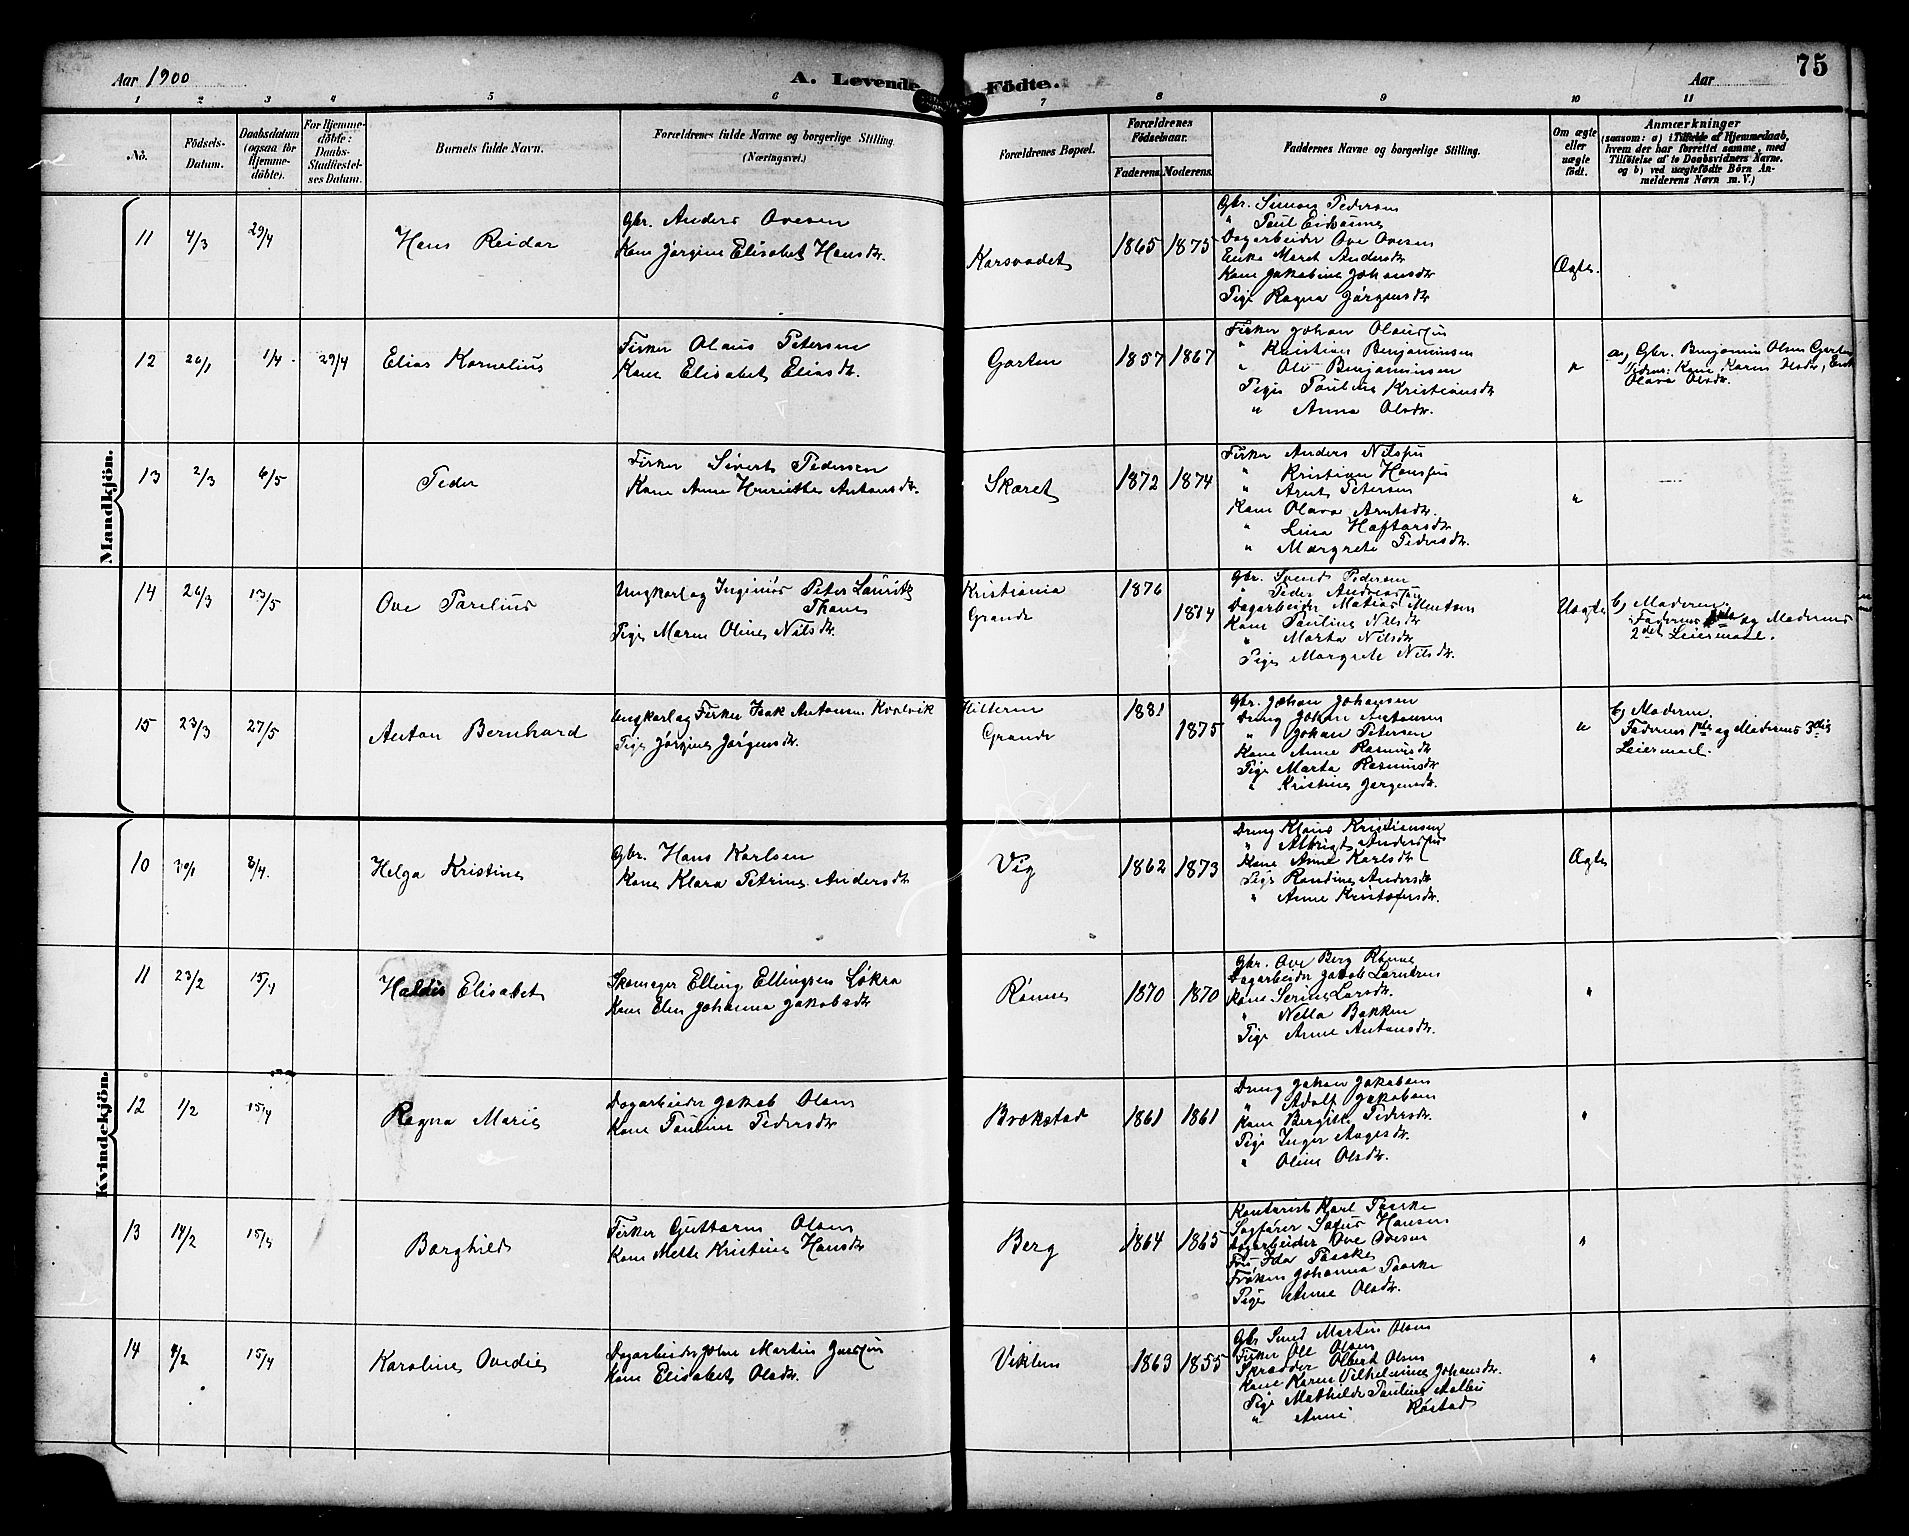 Aar 1900
A. Levende Födte.
Aar
75
1 2 3 4 5 6 7 8 9 10 11
No.
Födsels-Datum.
Daabsdatum (ogsaa for Hjemme-döbte).
For Hjemme-döbte: Daabs-Stadfæstelses Datum.
Barnets fulde Navn.
Forældrenes fulde Navne og borgerlige Stilling. (Næringsvei.)
Forældrenes Bopæl.
Forældrenes Födselsaar.
Faderens. Moderens.
Faddernes Navne og borgerlige Stilling.
Om ægte eller uægte födt.
Anmærkninger
(saasom: a) i Tilfælde af Hjemmedaab,
hvem der har forrettet samme, med
Tilföielse af to Daabsvidners Navne.
og b) ved uægtefödte Börn An-
melderens Navn m. V.)
Mandkjön.
11 4/3 29/4 Hans Reidar
Gbr. Anders Ovesen
Kone Jørgine Elisabet Hansdtr.
Karsvadet 1865 1875
Gbr. Simon Pedersen
" Paul
Dagarbeider Ove Ovesen
Enke Maret Andersdtr
Kone Jakobine Johansdtr
Pige Ragna Jørgensdtr
Ægte.
12 26/1 1/4 29/4 Elias Kornelius
Fisker Olaus Petersen
Kone Elisabet Eliasdtr.
Garten 1857 1867
Fisker Johan Olaussen
" Kristian Benjaminsen
" Ole Benjaminsen
Pige Pauline Kristiansdtr
" Anna Olsdtr.
"
a) Gbr. Benjamin Olsen Garten
Vidner: Kone Karen Olsdtr,
Olava Olsdtr.
13 2/3 6/5 Peder
Fisker Sivert Pedersen
Kone Anne Henriette Antonsdtr.
Skaret 1872 1874
Fisker Anders Nilssen
" Kristian Hanssen
" Arnt Petersen
Kone Olava Arntsdtr.
" Lina Haftorsdtr
" Margrete Pedersdtr.
"
14 26/3 13/5 Ove Parelius
Ungkarl og Ingeniør Peter Lauritz
Thams
Pige Maren Oline Nilsdtr.
Kristiania
Grande
1876
1874
Gbr. Svend Pedersen
" Peder Andreassen
Dagarbeider Matias Mentsen
Kone Pauline Nilsdtr
" Marta Nilsdtr
Pige Margrete Nilsdtr.
Uægte
b) Moderen.
Faderens 1ste og Moderens
2det Leiermaal.
15 23/3 27/5 Anton Bernhard
Ungkarl og Fisker Isak Antonsen Kvalvik
Pige Jørgine Jørgensdtr.
Hitteren
Grande
1881
1875
Gbr. Johan Johansen
Dreng Johan Antonsen
" Johan Petersen
Kone Anne Rasmusdtr
Pige Marta Rasmusdtr
" Kristine Jørgensdtr.
"
b) Moderen
Faderens 1ste og Moderens 3die
Leiermaal.
Kvindekjön.
10 30/1 8/4. Helga Kristine
Gbr. Hans Karlsen
Kone Klara Petrine Andersdtr
Vig 1862 1873
Dreng Klaus Kristiansen
" Albrigt Anderssen
Kone Anne Karlsdtr
Pige Randine Andersdtr
" Anne Kristofersdtr.
Ægte
11 23/2 15/4 Haldis Elisabet
Skomager Elling Ellingsen Løkra
Kone Elen Johanna Jakobsdtr
Rønne 1870 1870
Gbr. Ove Berg Rønne
Dagarbeider Jakob Larntzen
Kone Serine Larsdtr.
" Nella Bakken
Pige Anne Antonsdtr.
"
12 1/2 15/4 Ragna Marie
Dagarbeider Jakob Olsen
Kone Pauline Pedersdtr
Brækstad 1861 1861
Dreng Johan Jakobsen
" Adolf Jakobsen
Kone Bergitte Pedersdtr.
Pige Inger Aagesdtr.
" Oline Olsdtr.
"
13 14/2 15/4 Borghild
Fisker Guttorm Olsen
Kone Mette Kristine Hansdtr
Berg 1864 1865
Kontorist Karl Paaske
Sagfører Sofus Hansen
Dagarbeider Ove Ovesen
Fru Ida Paaske
Frøken Johanna Paaske
Pige Anne Olsdtr.
"
14 4/2 15/4 Karoline Ovedie
Dagarbeider John Martin Jenssen
Kone Elisabet Olsdtr.
Viklem 1863 1855
Gbr Smed Martin Olsen
Fisker Ole Olsen
Skrædder Olbert Olsen
Kone Karen Vilhelmine Johansdtr.
Pige Mathilde Pauline Aalbu
" Anne Røstad
"